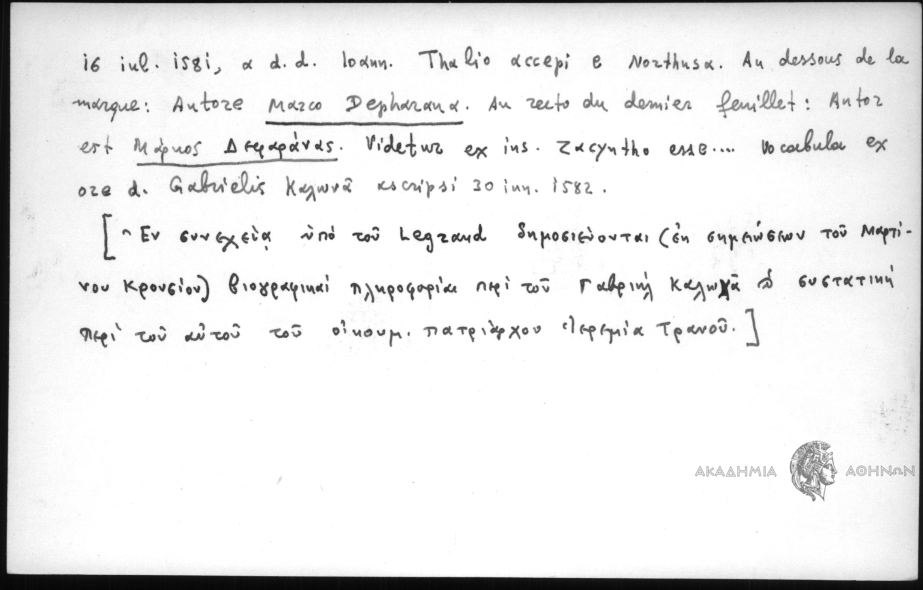 16 iul. 1581, a d.d. Ioann. Thalio accepi e Northusa. Au dessous de la
marque: Autore Marco Depharana. Au recto du dernier feuillet: Autor
est Μάρκος Δεφαράνας. Videtur ex ins. Zacyntho esse.... Vocabula ex
ore d. Gabrielis Καλωνᾶ ascripsi 30 iun. 1582.
[Ἐν συνεχείᾳ ὑπό τοῦ Legrand δημοσιεύονται (ἐκ σημειώσεων τοῦ Μαρτί-
νου Κρουσίου) βιογραφικαί πληροφορίαι περί τοῦ Γαβριήλ Καλωνᾶ συστατική
περί τοῦ αὐτοῦ τοῦ οἰκουμ. πατριάρχου Ἱερεμία Τρανοῦ.]
ΑΚΑΔΗΜΙΑ ΑΘΗΝΩΝ